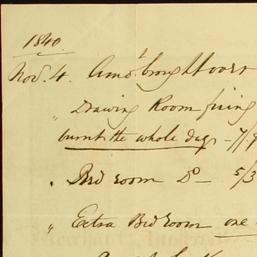 1840.
Nov. 4. Amot. brought over
" Drawing Room firing
burnt the whole day - 7/9
" Bed room Do - 5/3
" Extra Bed room one